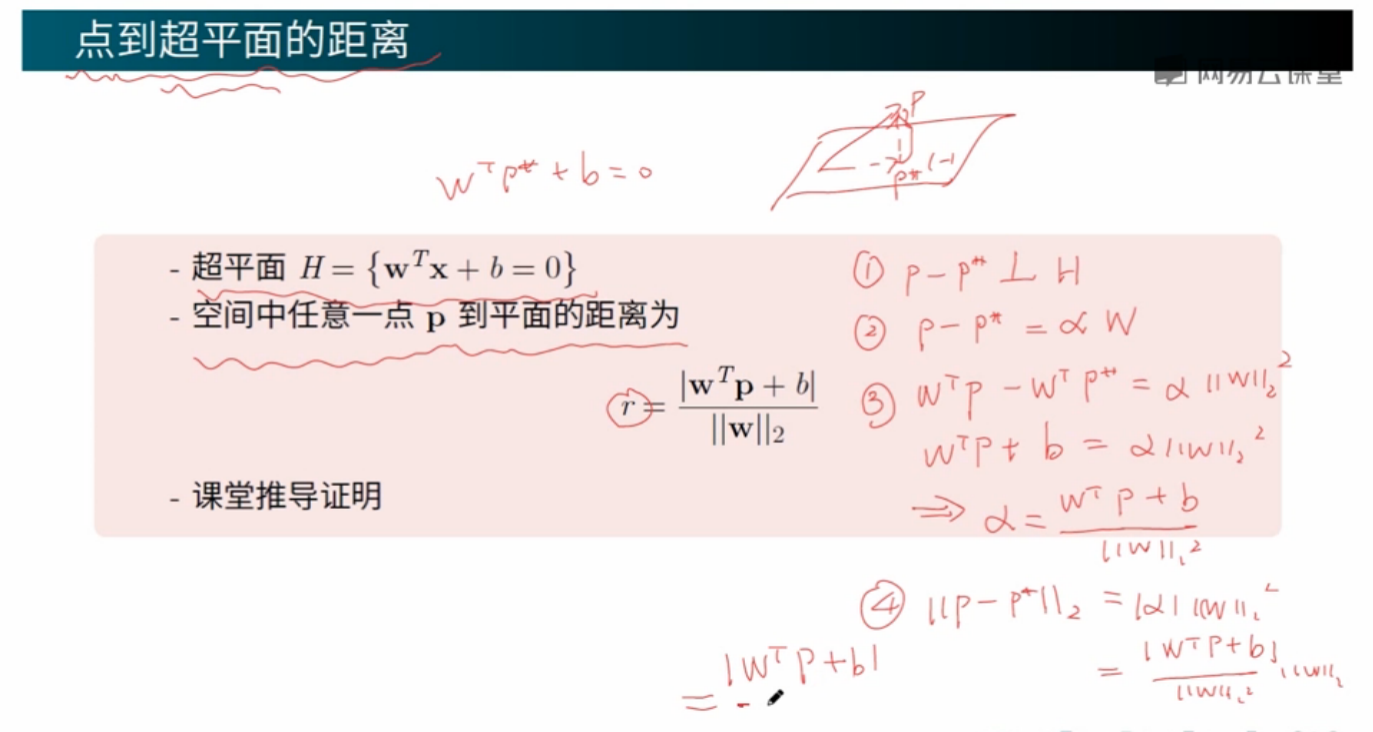 点到超平面的距离
网易云课堂
P
P*
W^T P* + b = 0
- 超平面 H = {w^T x + b = 0}
- 空间中任意一点 p 到平面的距离为
r = |w^T p + b| / ||w||₂
- 课堂推导证明
① P - P* ⊥ H
② P - P* = α W
③ W^T P - W^T P* = α ||W||₂²
W^T P + b = α ||W||₂²
⇒ α = W^T P + b / ||W||₂²
④ ||P - P*||₂ = |α| ||W||₂²
= |W^T P + b| / ||W||₂² · ||W||₂
= |W^T P + b|